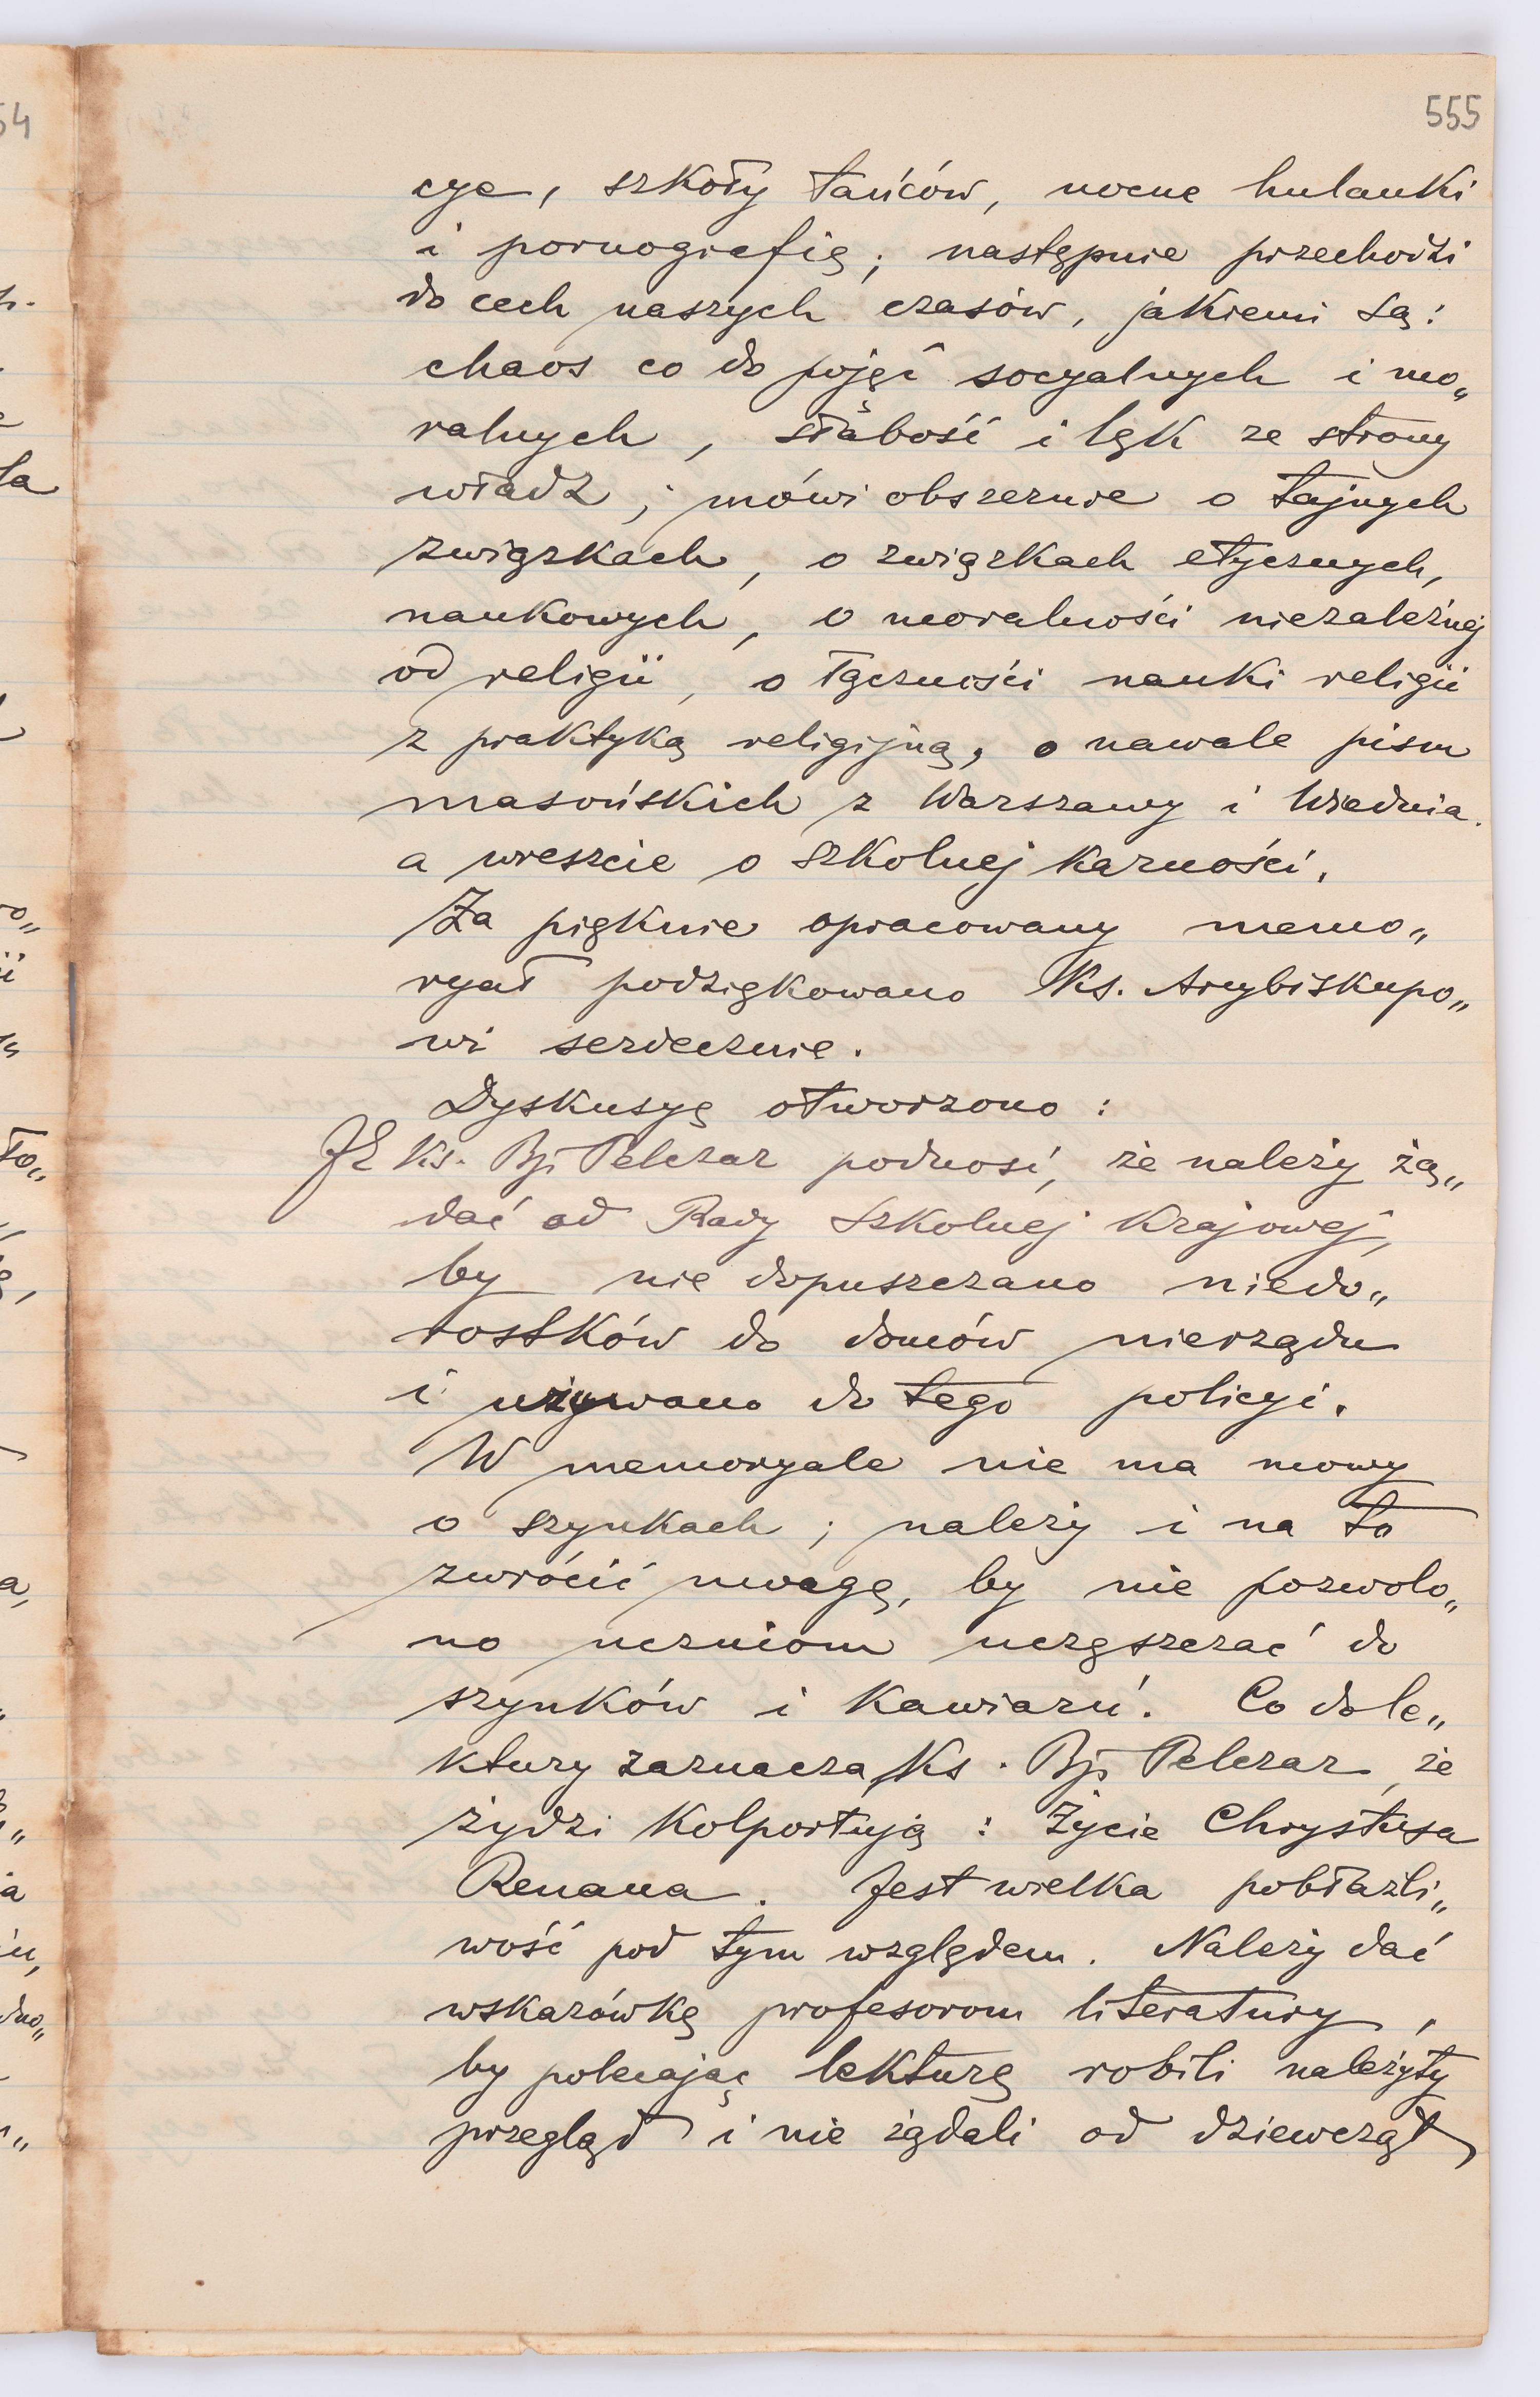 555
cye, szkoły tańców, nocne hulanki
i pornografię; następnie przechodzi
do cech naszych czasów, jakiemi są:
chaos co do pojęć socyalnych i mo„
ralnych, słabość i lęk ze strony
władz; mówi obszernie o tajnych
związkach, o związkach etycznych,
naukowych, o moralności niezależnej
od religii, o łączności nauki religii
z praktyką religijną, o nawale pism
masońskich z Warszawy i Wiednia.
a wreszcie o szkolnej karności.
Za pięknie opracowany memo„
ryał podziękowano Ks. Arcybiskupo„
wi serdecznie.
Dyskusyę otworzono:
JE Ks. Bp Pelczar podnosi, że należy żą„
dać od Rady Szkolnej Krajowej,
by nie dopuszczano niedo„
rostków do domów nierządu
i używano do tego policyi.
W memoryale nie ma mowy
o szynkach; należy i na to
zwrócić uwagę, by nie pozwolo„
no uczniom uczęszczać do
szynków i kawiarń. Co do le„
ktury zaznacza Ks. Bp Pelczar, że
żydzi kolportują: Życie Chrystusa
Renana. Jest wielka pobłażli„
wość pod tym względem. Należy dać
wskazówkę profesorom literatury,
by polecając lekturę robili należyty
przegląd i nie żądali od dziewcząt